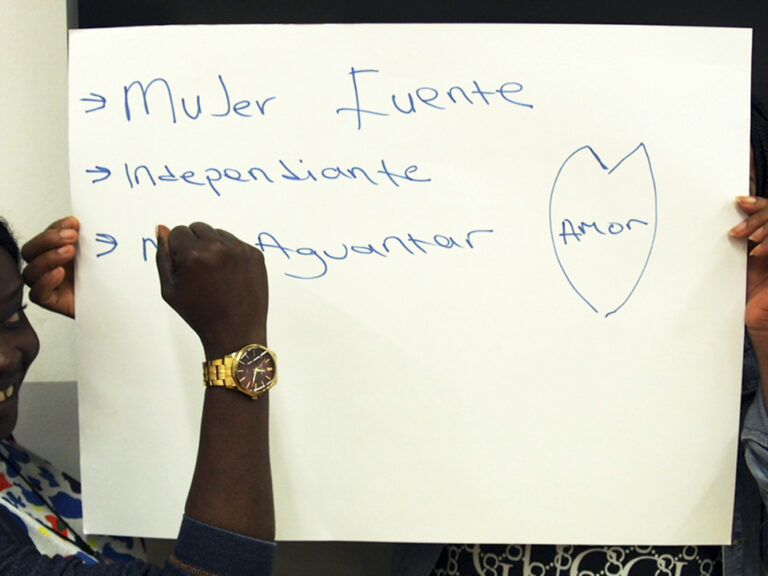 → MuJer Fuente
→ Independiante
→ Aguantar
AMor